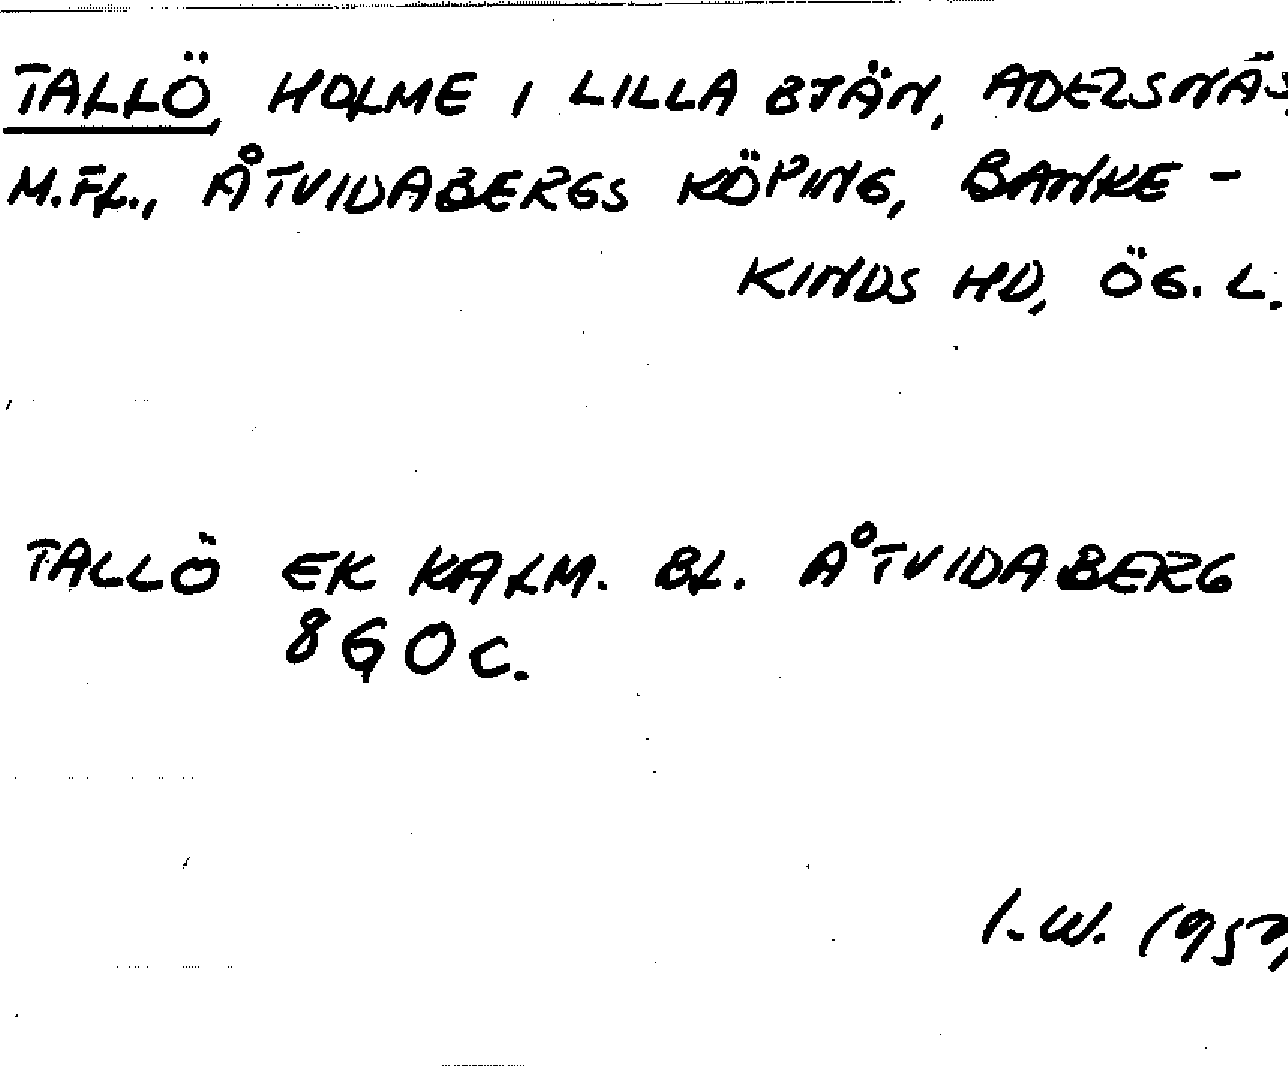 TALLÖ, HOLME I LILLA BJÄN, ADELSNÄS
M.FL., ÅTVIDABERGS KÖPING, BANKE-
KINDS HD, ÖG. L.
TALLÖ EK KALM. BL. ÅTVIDABERG
8 G O C.
I.W. 1957